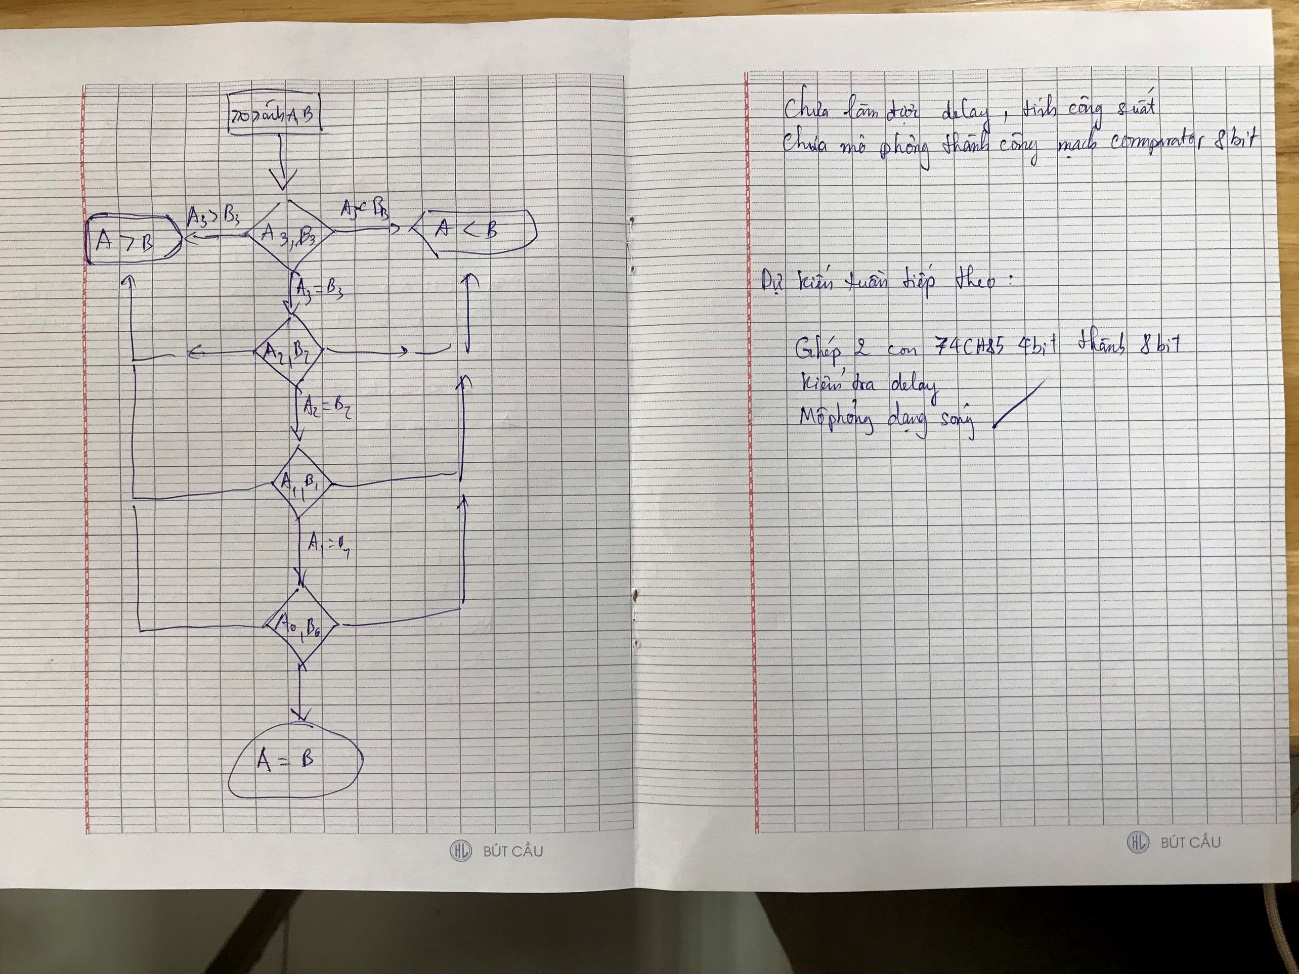 so sánh A, B
A3 > B3
A3 < B3
A > B
A3, B3
A < B
A3 = B3
A2, B2
A2 = B2
A1, B1
A1 = B1
A0, B0
A = B
HL BÚT CẦU
Chưa làm được delay, tính công suất
Chưa mô phỏng thành công mạch comparator 8 bit
Dự kiến tuần tiếp theo:
Ghép 2 con 74CH85 4bit thành 8bit
Kiểm tra delay
Mô phỏng dạng sóng
HL BÚT CẦU